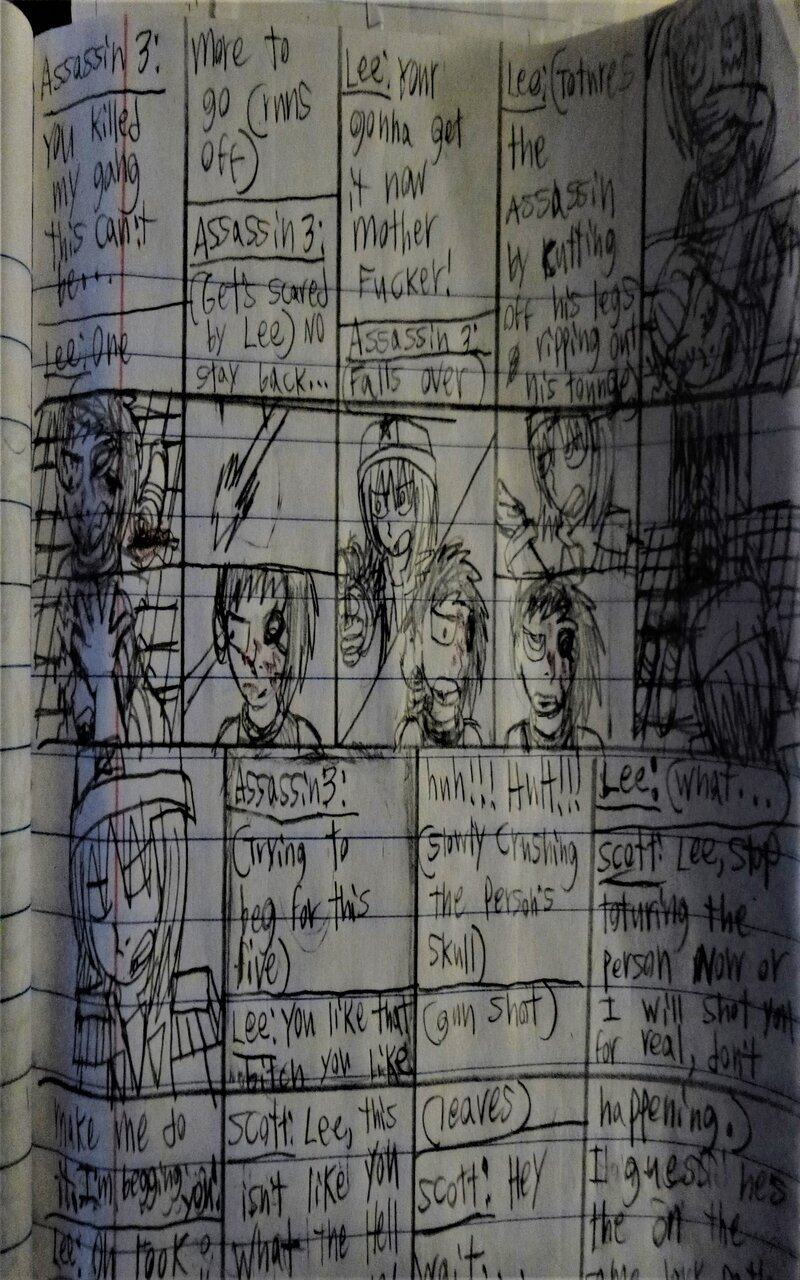 Assassin 3:
You killed
my gang
this can't
be...
Lee: One
More to
go (runs
off)
Assassin 3:
(Get's scared
by Lee) NO
stay back...
Lee: Your
gonna get
it now
mother
Fucker!
Assassin 3:
(Falls over)
Lee: (Totures
the
Assassin
by kutting
off his legs
ripping out
his tounge)
Assassin3:
(Trying to
beg for this
live)
Lee: You like that
bitch you like
huh!!! Huh!!!
(slowly crushing
the Person's
skull)
(gun shot)
Lee: (what...
scott: Lee, stop
toturing the
person Now or
I will shot you
for real, don't
make me do
it, I'm begging you!
Lee: Oh look
scott: Lee, this
isn't like you
What the Hell
(leaves)
scott: Hey
wait...
happening.)
I guess hes
the on the